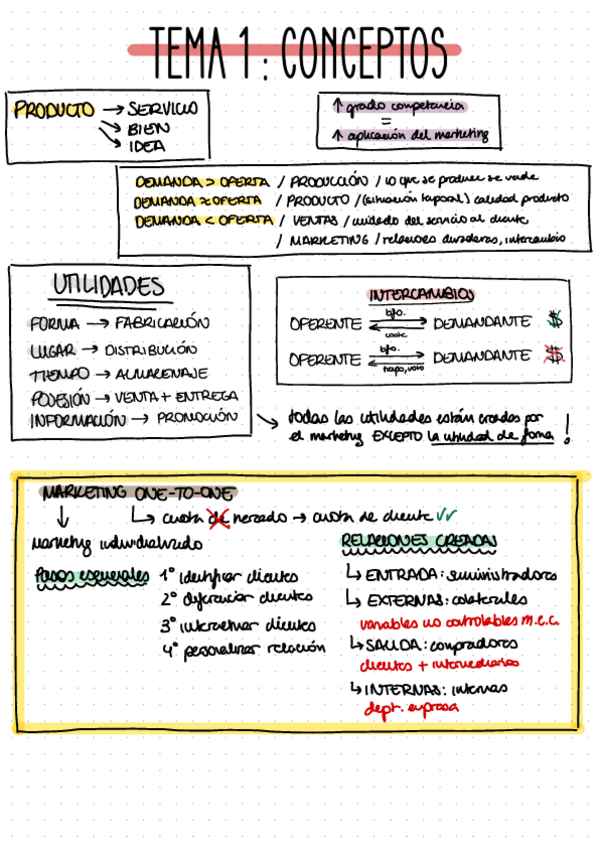 TEMA 1: CONCEPTOS
PRODUCTO → SERVICIO
→ BIEN
→ IDEA
↑ grado competencia
=
↑ aplicación del marketing
DEMANDA > OFERTA / PRODUCCIÓN / lo que se produce se vende
DEMANDA ≈ OFERTA / PRODUCTO / (situación temporal) calidad producto
DEMANDA < OFERTA / VENTAS / cuidado del servicio al cliente
/ MARKETING / relaciones duraderas, intercambio
UTILIDADES
FORMA → FABRICACIÓN
LUGAR → DISTRIBUCIÓN
TIEMPO → ALMACENAJE
POSESIÓN → VENTA + ENTREGA
INFORMACIÓN → PROMOCIÓN
INTERCAMBIOS
bfo.
OFERENTE DEMANDANTE $
coste
bfo.
OFERENTE DEMANDANTE $
tiempo, voto
↘ todas las utilidades están creadas por
el marketing EXCEPTO la utilidad de forma !
MARKETING ONE-TO-ONE
↳ cuota de mercado → cuota de cliente ✓✓
Marketing individualizado
Pasos esenciales
1º identificar clientes
2º diferenciar clientes
3º interactuar clientes
4º personalizar relación
RELACIONES CREADAS
↳ ENTRADA: suministradores
↳ EXTERNAS: colaterales
variables no controlables m.c.c.
↳ SALIDA: compradores
clientes + intermediarios
↳ INTERNAS: internas
dept. empresa